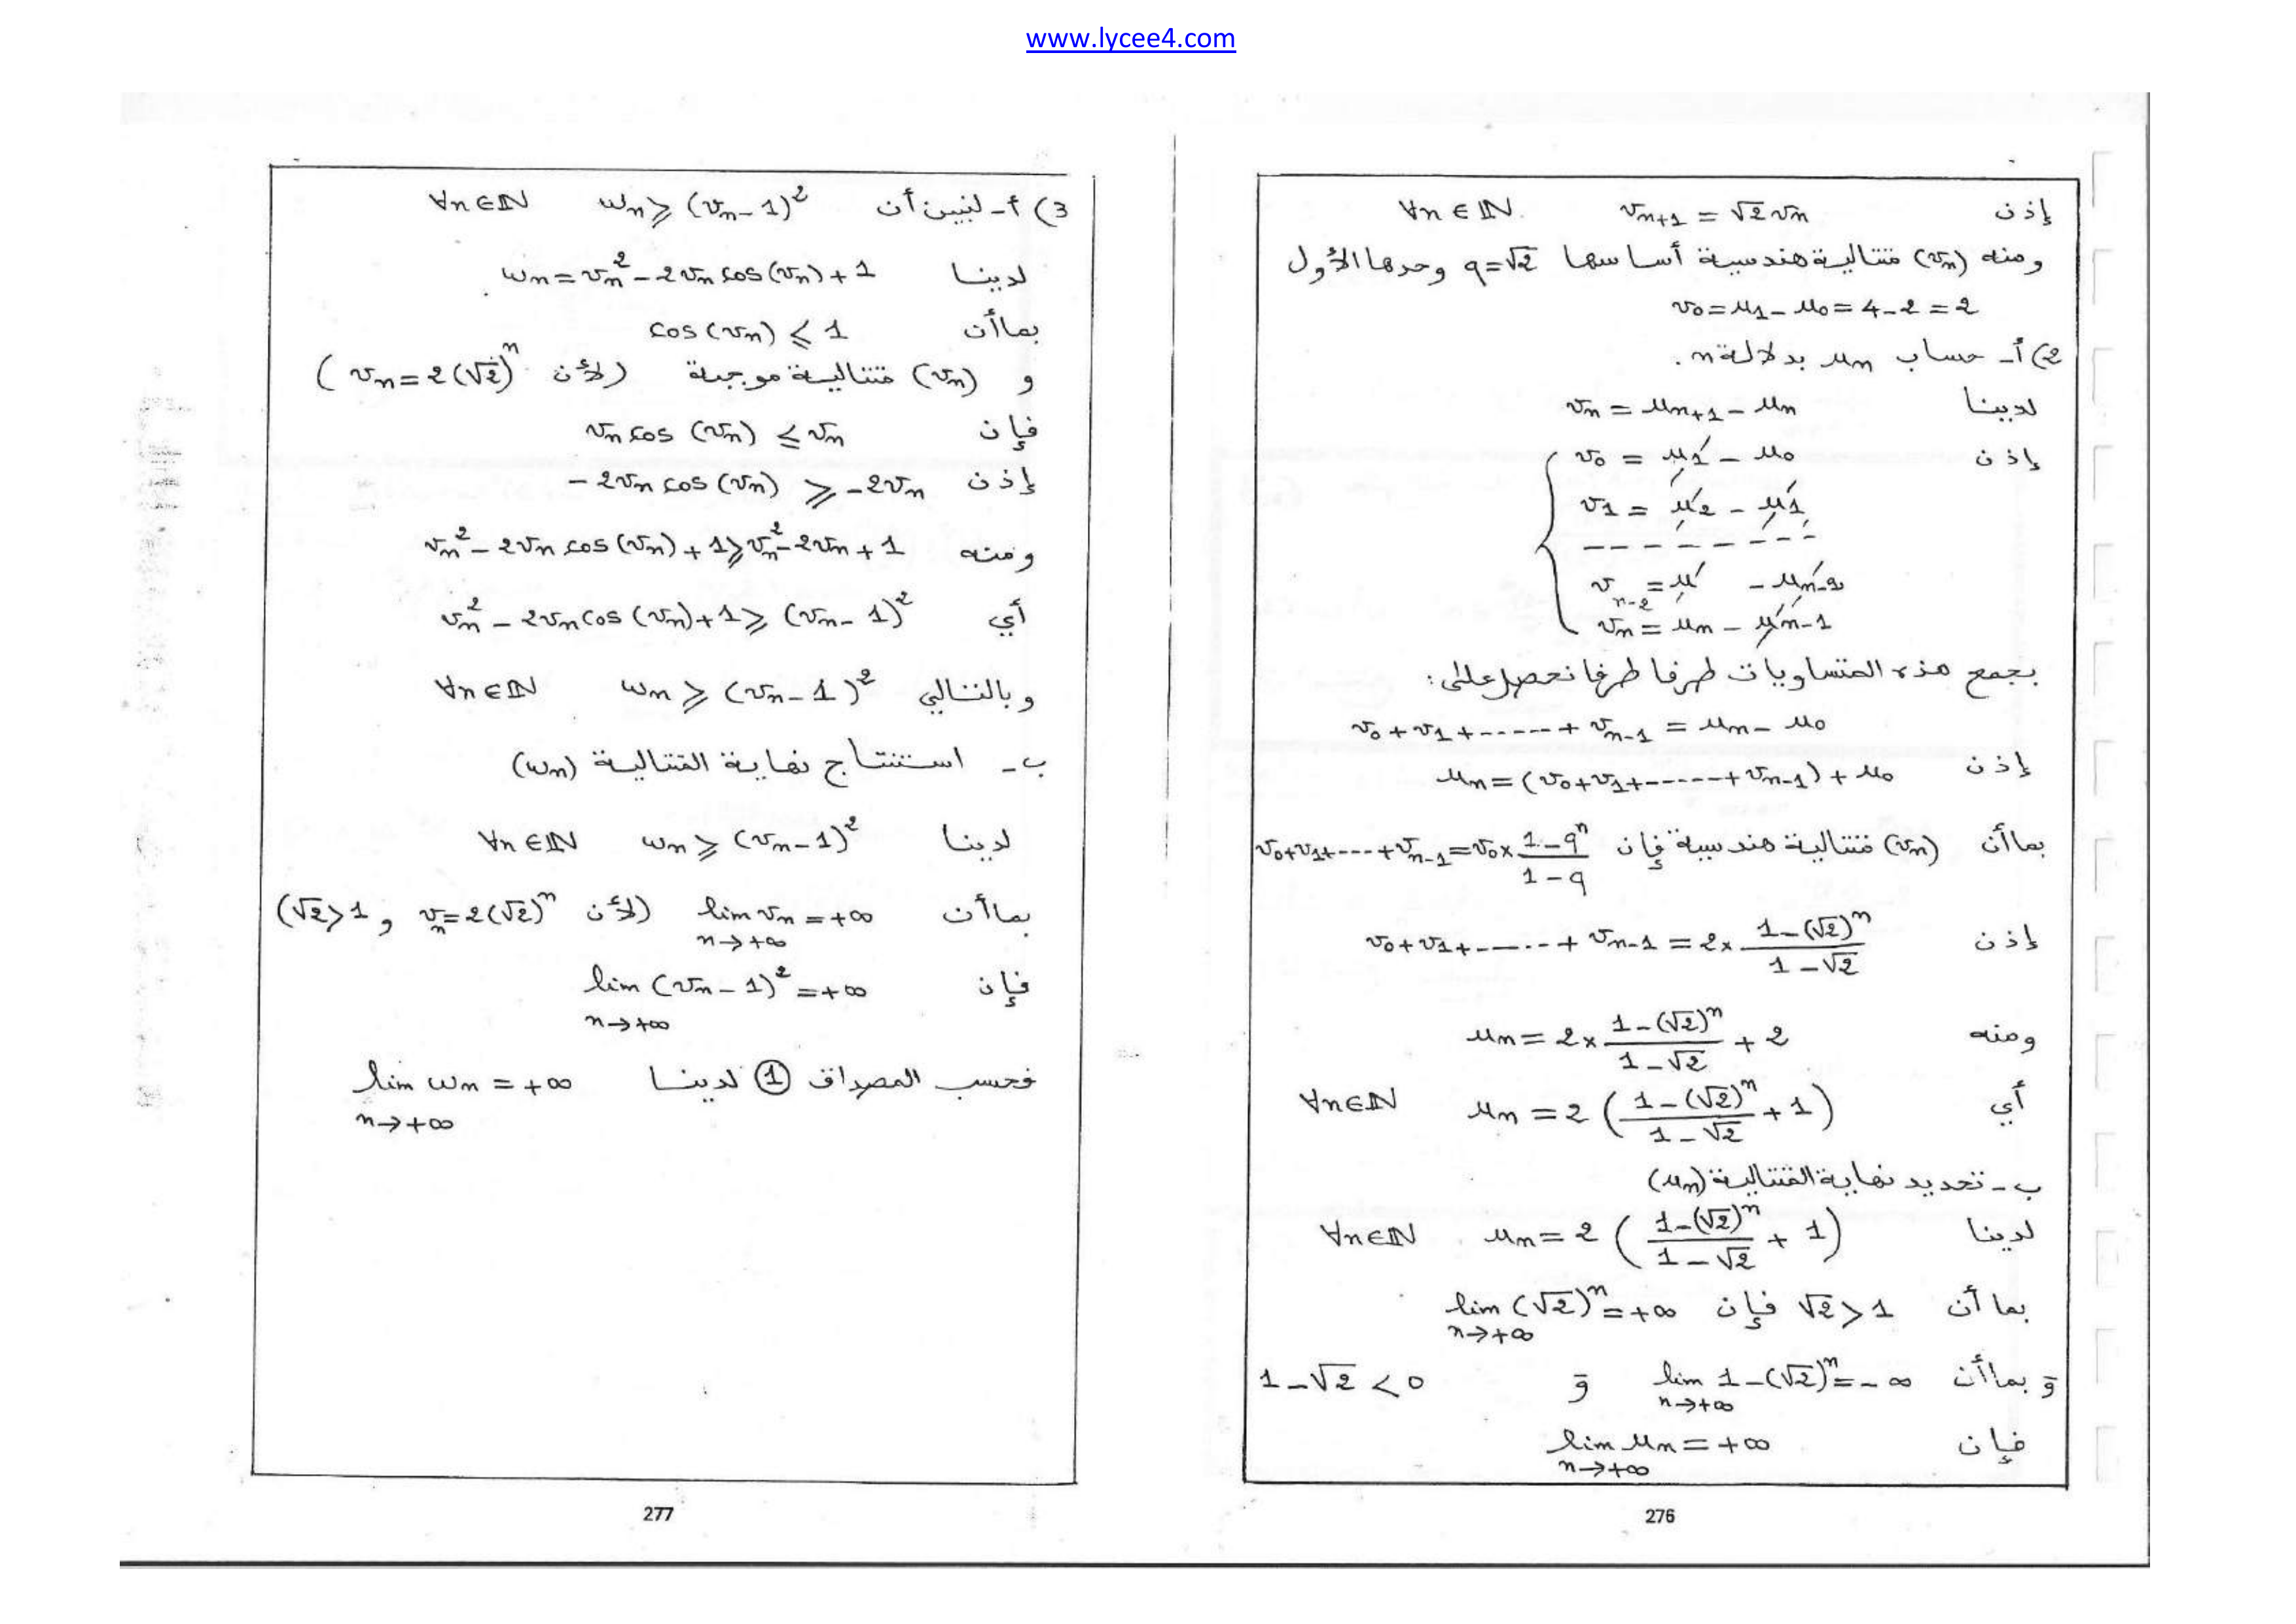 www.lycee4.com
إذن vₙ₊₁ = √2 vₙ ∀n ∈ ℕ
ومنه (vₙ) متتالية هندسية أساسها q=√2 وحدها الأول
v₀ = u₁ - u₀ = 4 - 2 = 2
2) أ- حساب uₙ بدلالة n.
لدينا vₙ = uₙ₊₁ - uₙ
إذن v₀ = u₁ - u₀
v₁ = u₂ - u₁
- - - - - - - - -
vₙ₋₂ = u - uₙ₋₂
vₙ = uₙ - uₙ₋₁
بجمع هذه المتساويات طرفا طرفا نحصل على:
v₀ + v₁ + ------ + vₙ₋₁ = uₙ - u₀
إذن uₙ = (v₀ + v₁ + ------ + vₙ₋₁) + u₀
بما أن (vₙ) متتالية هندسية فإن v₀+v₁+---+vₙ₋₁ = v₀ × (1-qⁿ)/(1-q)
إذن v₀ + v₁ + ------ + vₙ₋₁ = 2 × (1-(√2)ⁿ)/(1-√2)
ومنه uₙ = 2 × (1-(√2)ⁿ)/(1-√2) + 2
أي uₙ = 2 ((1-(√2)ⁿ)/(1-√2) + 1) ∀n∈ℕ
ب- تحديد نهاية المتتالية (uₙ)
لدينا uₙ = 2 ((1-(√2)ⁿ)/(1-√2) + 1) ∀n∈ℕ
بما أن √2 > 1 فإن lim (√2)ⁿ = +∞
n→+∞
و بما أن lim 1-(√2)ⁿ = -∞ و 1-√2 < 0
n→+∞
فإن lim uₙ = +∞
n→+∞
276
3) أ- لنبين أن wₙ ⩾ (vₙ - 1)² ∀n∈ℕ
لدينا wₙ = vₙ² - 2vₙ cos(vₙ) + 1
بما أن cos(vₙ) ⩽ 1
و (vₙ) متتالية موجبة (لأن vₙ = 2(√2)ⁿ)
فإن vₙ cos(vₙ) ⩽ vₙ
إذن -2vₙ cos(vₙ) ⩾ -2vₙ
ومنه vₙ² - 2vₙ cos(vₙ) + 1 ⩾ vₙ² - 2vₙ + 1
أي vₙ² - 2vₙ cos(vₙ) + 1 ⩾ (vₙ - 1)²
وبالتالي wₙ ⩾ (vₙ - 1)² ∀n∈ℕ
ب- استنتاج نهاية المتتالية (wₙ)
لدينا wₙ ⩾ (vₙ - 1)² ∀n∈ℕ
بما أن lim vₙ = +∞ (لأن vₙ = 2(√2)ⁿ و √2 > 1)
n→+∞
فإن lim (vₙ - 1)² = +∞
n→+∞
فحسب المصداق ① لدينا lim wₙ = +∞
n→+∞
277